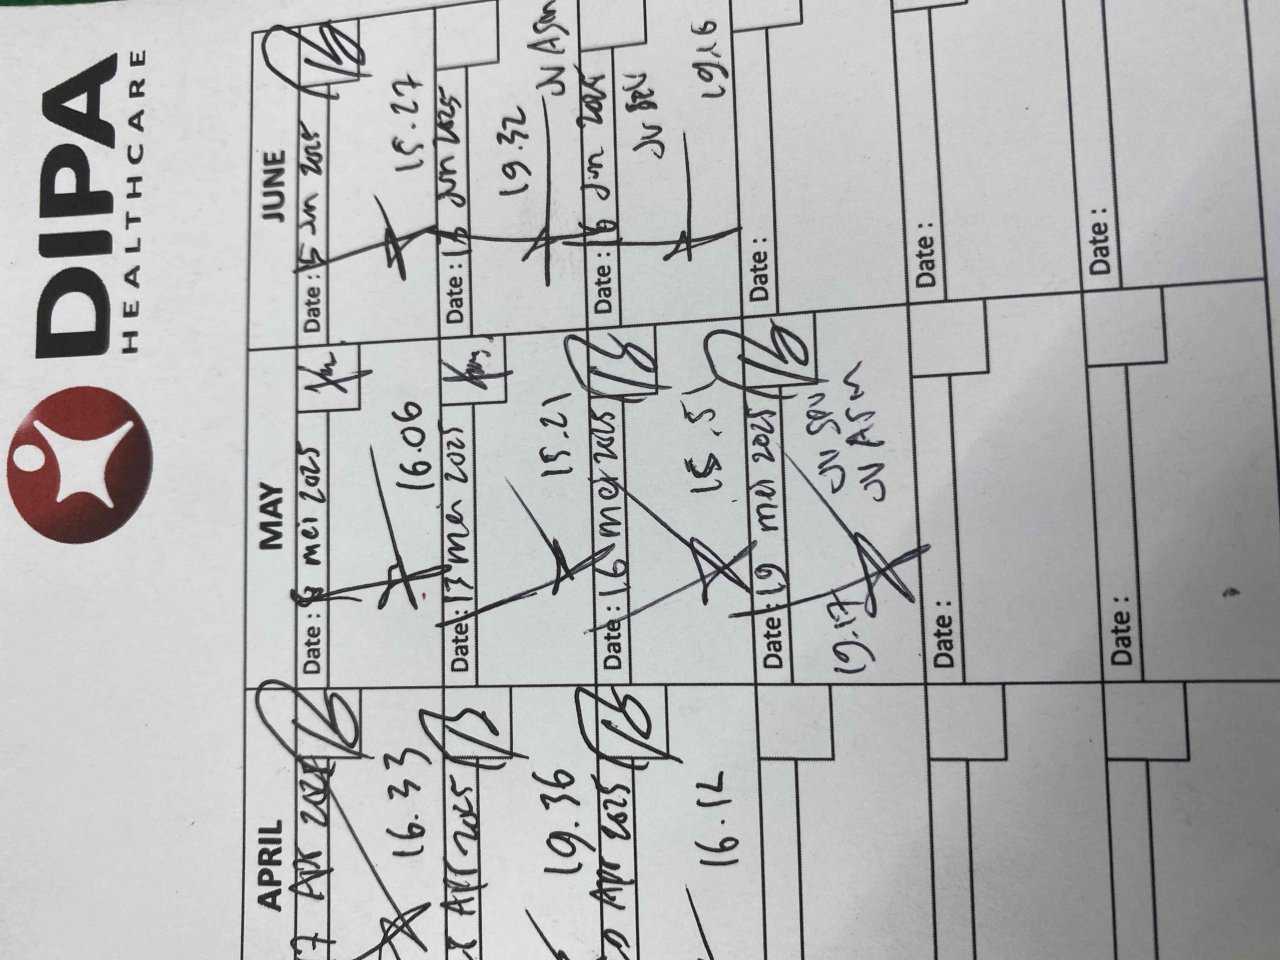 DIPA
HEALTHCARE
APRIL
MAY
JUNE
17 Apr 2025
Date : 8 mei 2025
Date : 15 Jun 2025
16.33
16.06
15.27
Apr 2025
Date : 13 mei 2025
Date : Jun 2025
19.36
15.21
19.32
JV ASM
Apr 2025
Date : 16 mei 2025
Date : 16 Jun 2025
16.12
15.51
JV SPV
19.16
Date : 19 mei 2025
Date :
19.17
JV SPV
JV ASM
Date :
Date :
Date :
Date :